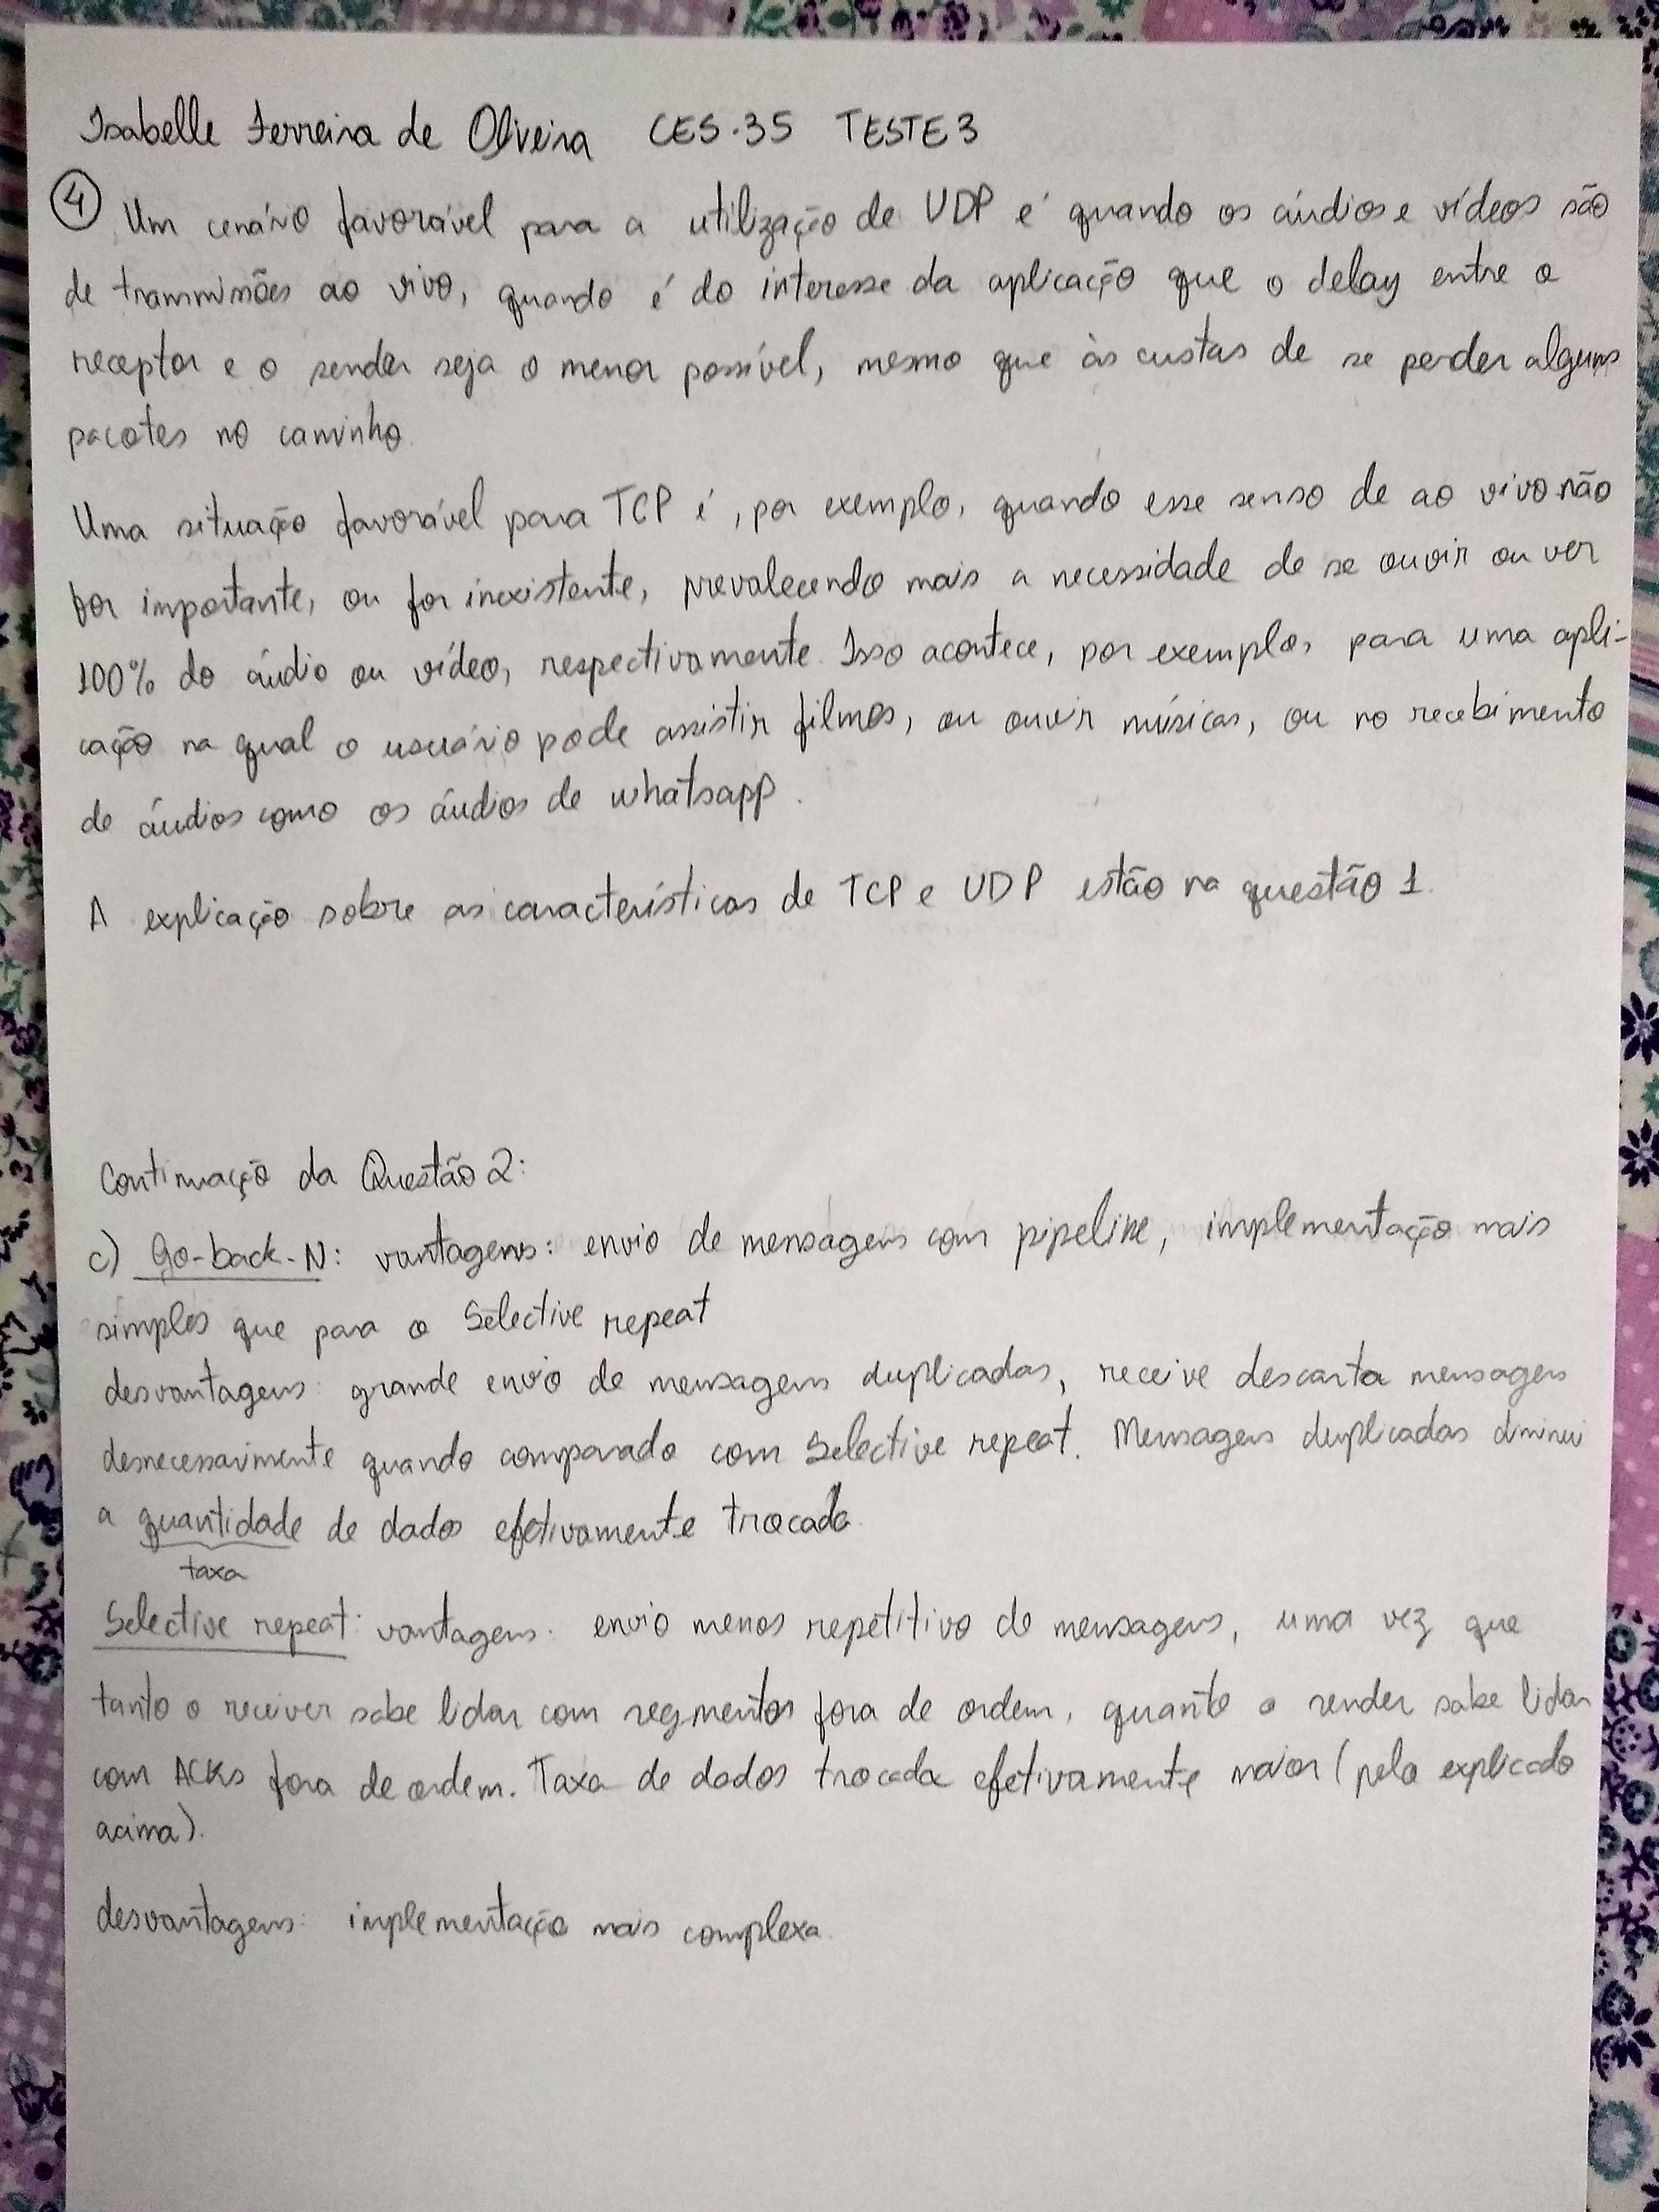 Isabelle Ferreira de Oliveira CES-35 TESTE 3
4 Um cenário favorável para a utilização de UDP é quando os áudios e vídeos são
de transmissões ao vivo, quando é do interesse da aplicação que o delay entre o
receptor e o sender seja o menor possível, mesmo que às custas de se perder alguns
pacotes no caminho.
Uma situação favorável para TCP é, por exemplo, quando esse senso de ao vivo não
for importante, ou for inexistente, prevalecendo mais a necessidade de se ouvir ou ver
100% do áudio ou vídeo, respectivamente. Isso acontece, por exemplo, para uma apli-
cação na qual o usuário pode assistir filmes, ou ouvir músicas, ou no recebimento
de áudios como os áudios de whatsapp.
A explicação sobre as características de TCP e UDP estão na questão 1.
Continuação da Questão 2:
c) Go-back-N: vantagens: envio de mensagens com pipeline, implementação mais
simples que para o Selective repeat
desvantagens: grande envio de mensagens duplicadas, receive descarta mensagens
desnecessairmente quando comparado com Selective repeat. Mensagens duplicadas diminui
a quantidade de dados efetivamente trocada.
taxa
Selective repeat: vantagens: envio menos repetitivo de mensagens, uma vez que
tanto o receiver sabe lidar com segmentos fora de ordem, quanto o sender sabe lidar
com ACKs fora de ordem. Taxa de dados trocada efetivamente maior (pelo explicado
acima).
desvantagens: implementação mais complexa.